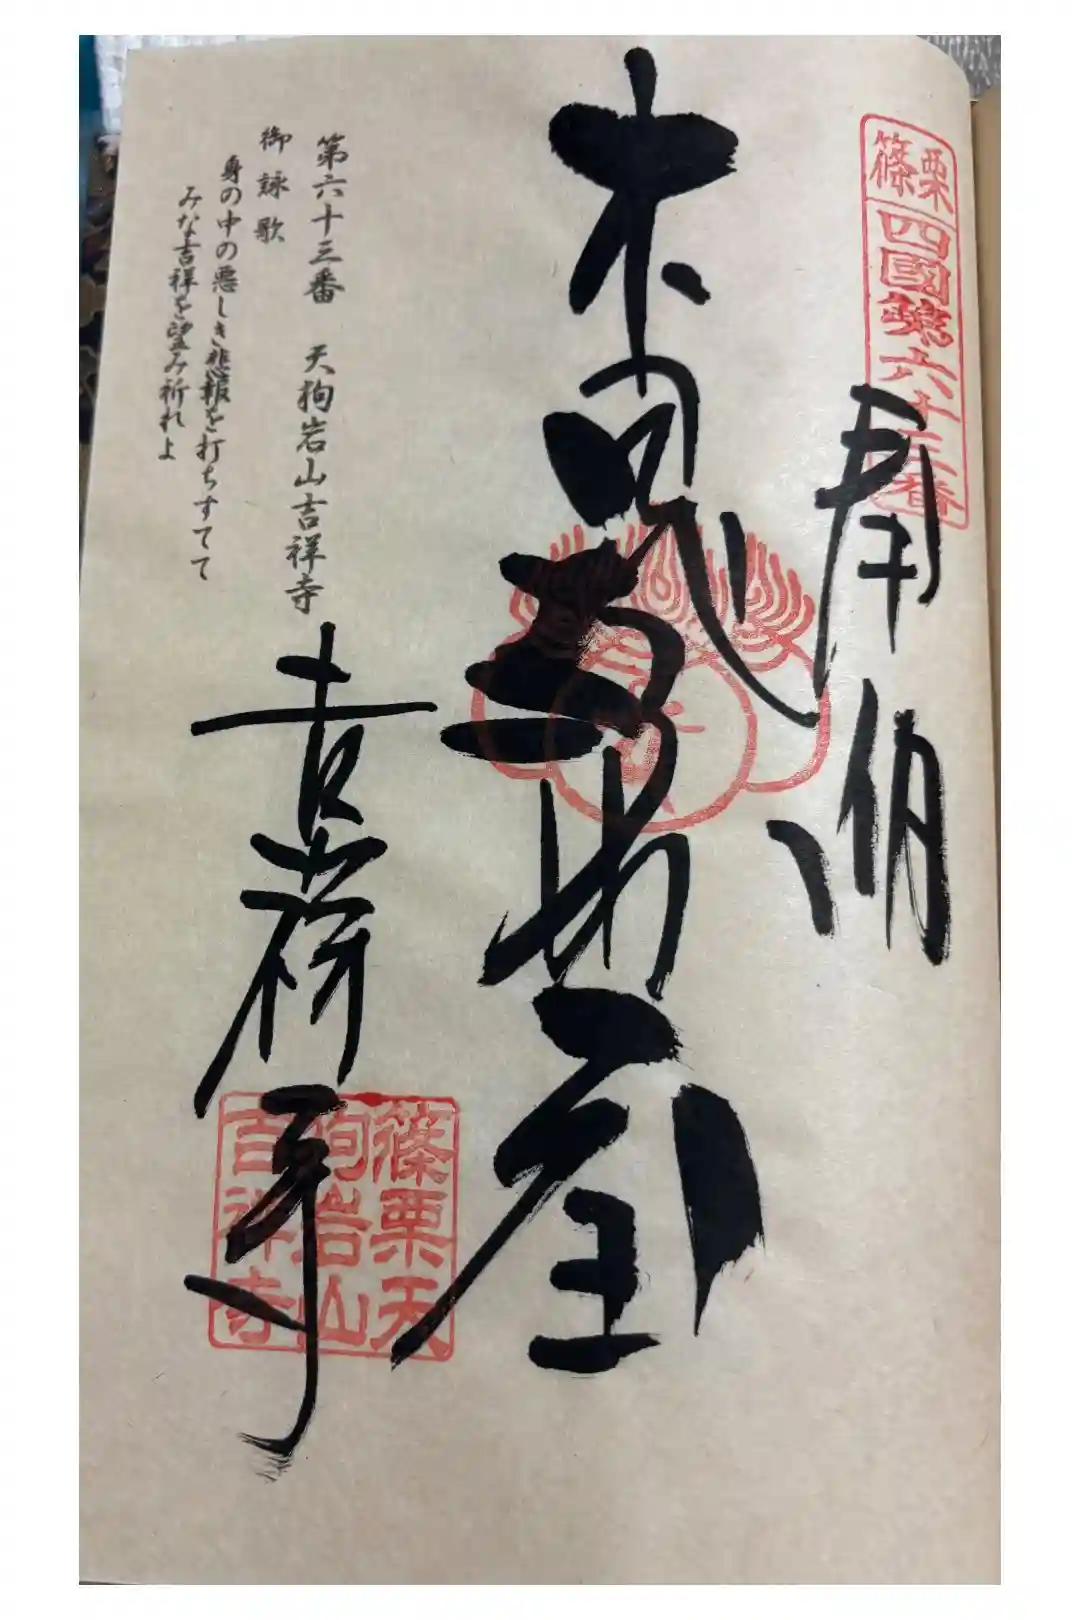 篠栗
四國第六十三番
奉納
第六十三番 天拘岩山吉祥寺
御詠歌
身の中の悪しき悲報を打ちすてて
みな吉祥を望み祈れよ
吉祥寺
篠栗天
拘岩山
吉祥寺